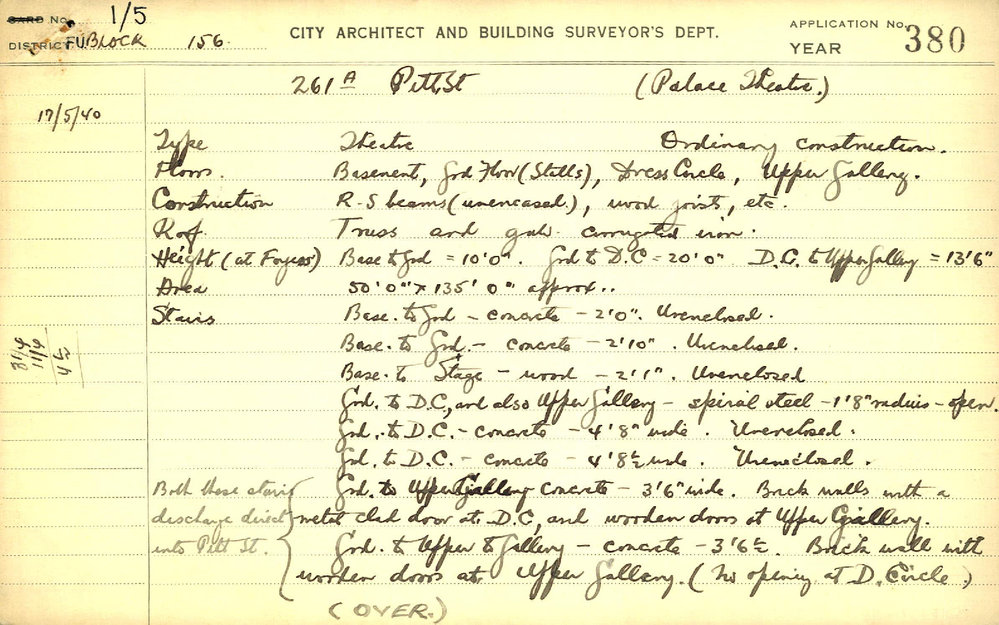 CARD No. 1/5
DISTRICT BLOCK 156.
CITY ARCHITECT AND BUILDING SURVEYOR'S DEPT.
APPLICATION No. 380
YEAR
261A Pitt St (Palace Theatre.)
17/5/40
Type Theatre Ordinary construction.
Floors. Basement, Grd Floor (Stalls), Dress Circle, Upper Gallery.
Construction R-S beams (unencased.), wood joists, etc.
Roof. Truss and galv. corrugated iron.
Height (at Foyers) Base to Grd = 10'0". Grd to D.C = 20'0" D.C. to Upper Gallery = 13'6"
Area 50'0" x 135'0" approx..
Stairs Base. to Grd – concrete – 2'0". Unenclosed.
Base. to Grd. – concrete – 2'10". Unenclosed.
Base. to Stage – wood – 2'1". Unenclosed
Grd. to D.C, and also Upper Gallery – spiral steel – 1'8" radius – open.
Grd. to D.C. – concrete – 4'8" wide. Unenclosed.
Grd. to D.C. – concrete – 4'8½ wide. Unenclosed.
Both these stairs Grd. to Upper Gallery concrete – 3'6" wide. Brick walls with a
discharge direct metal clad door at D.C, and wooden doors at Upper Gallery.
into Pitt St. Grd. to Upper to Gallery – concrete – 3'6½. Brick wall with
wooden doors at Upper Gallery. (No opening at D. Circle)
(OVER.)